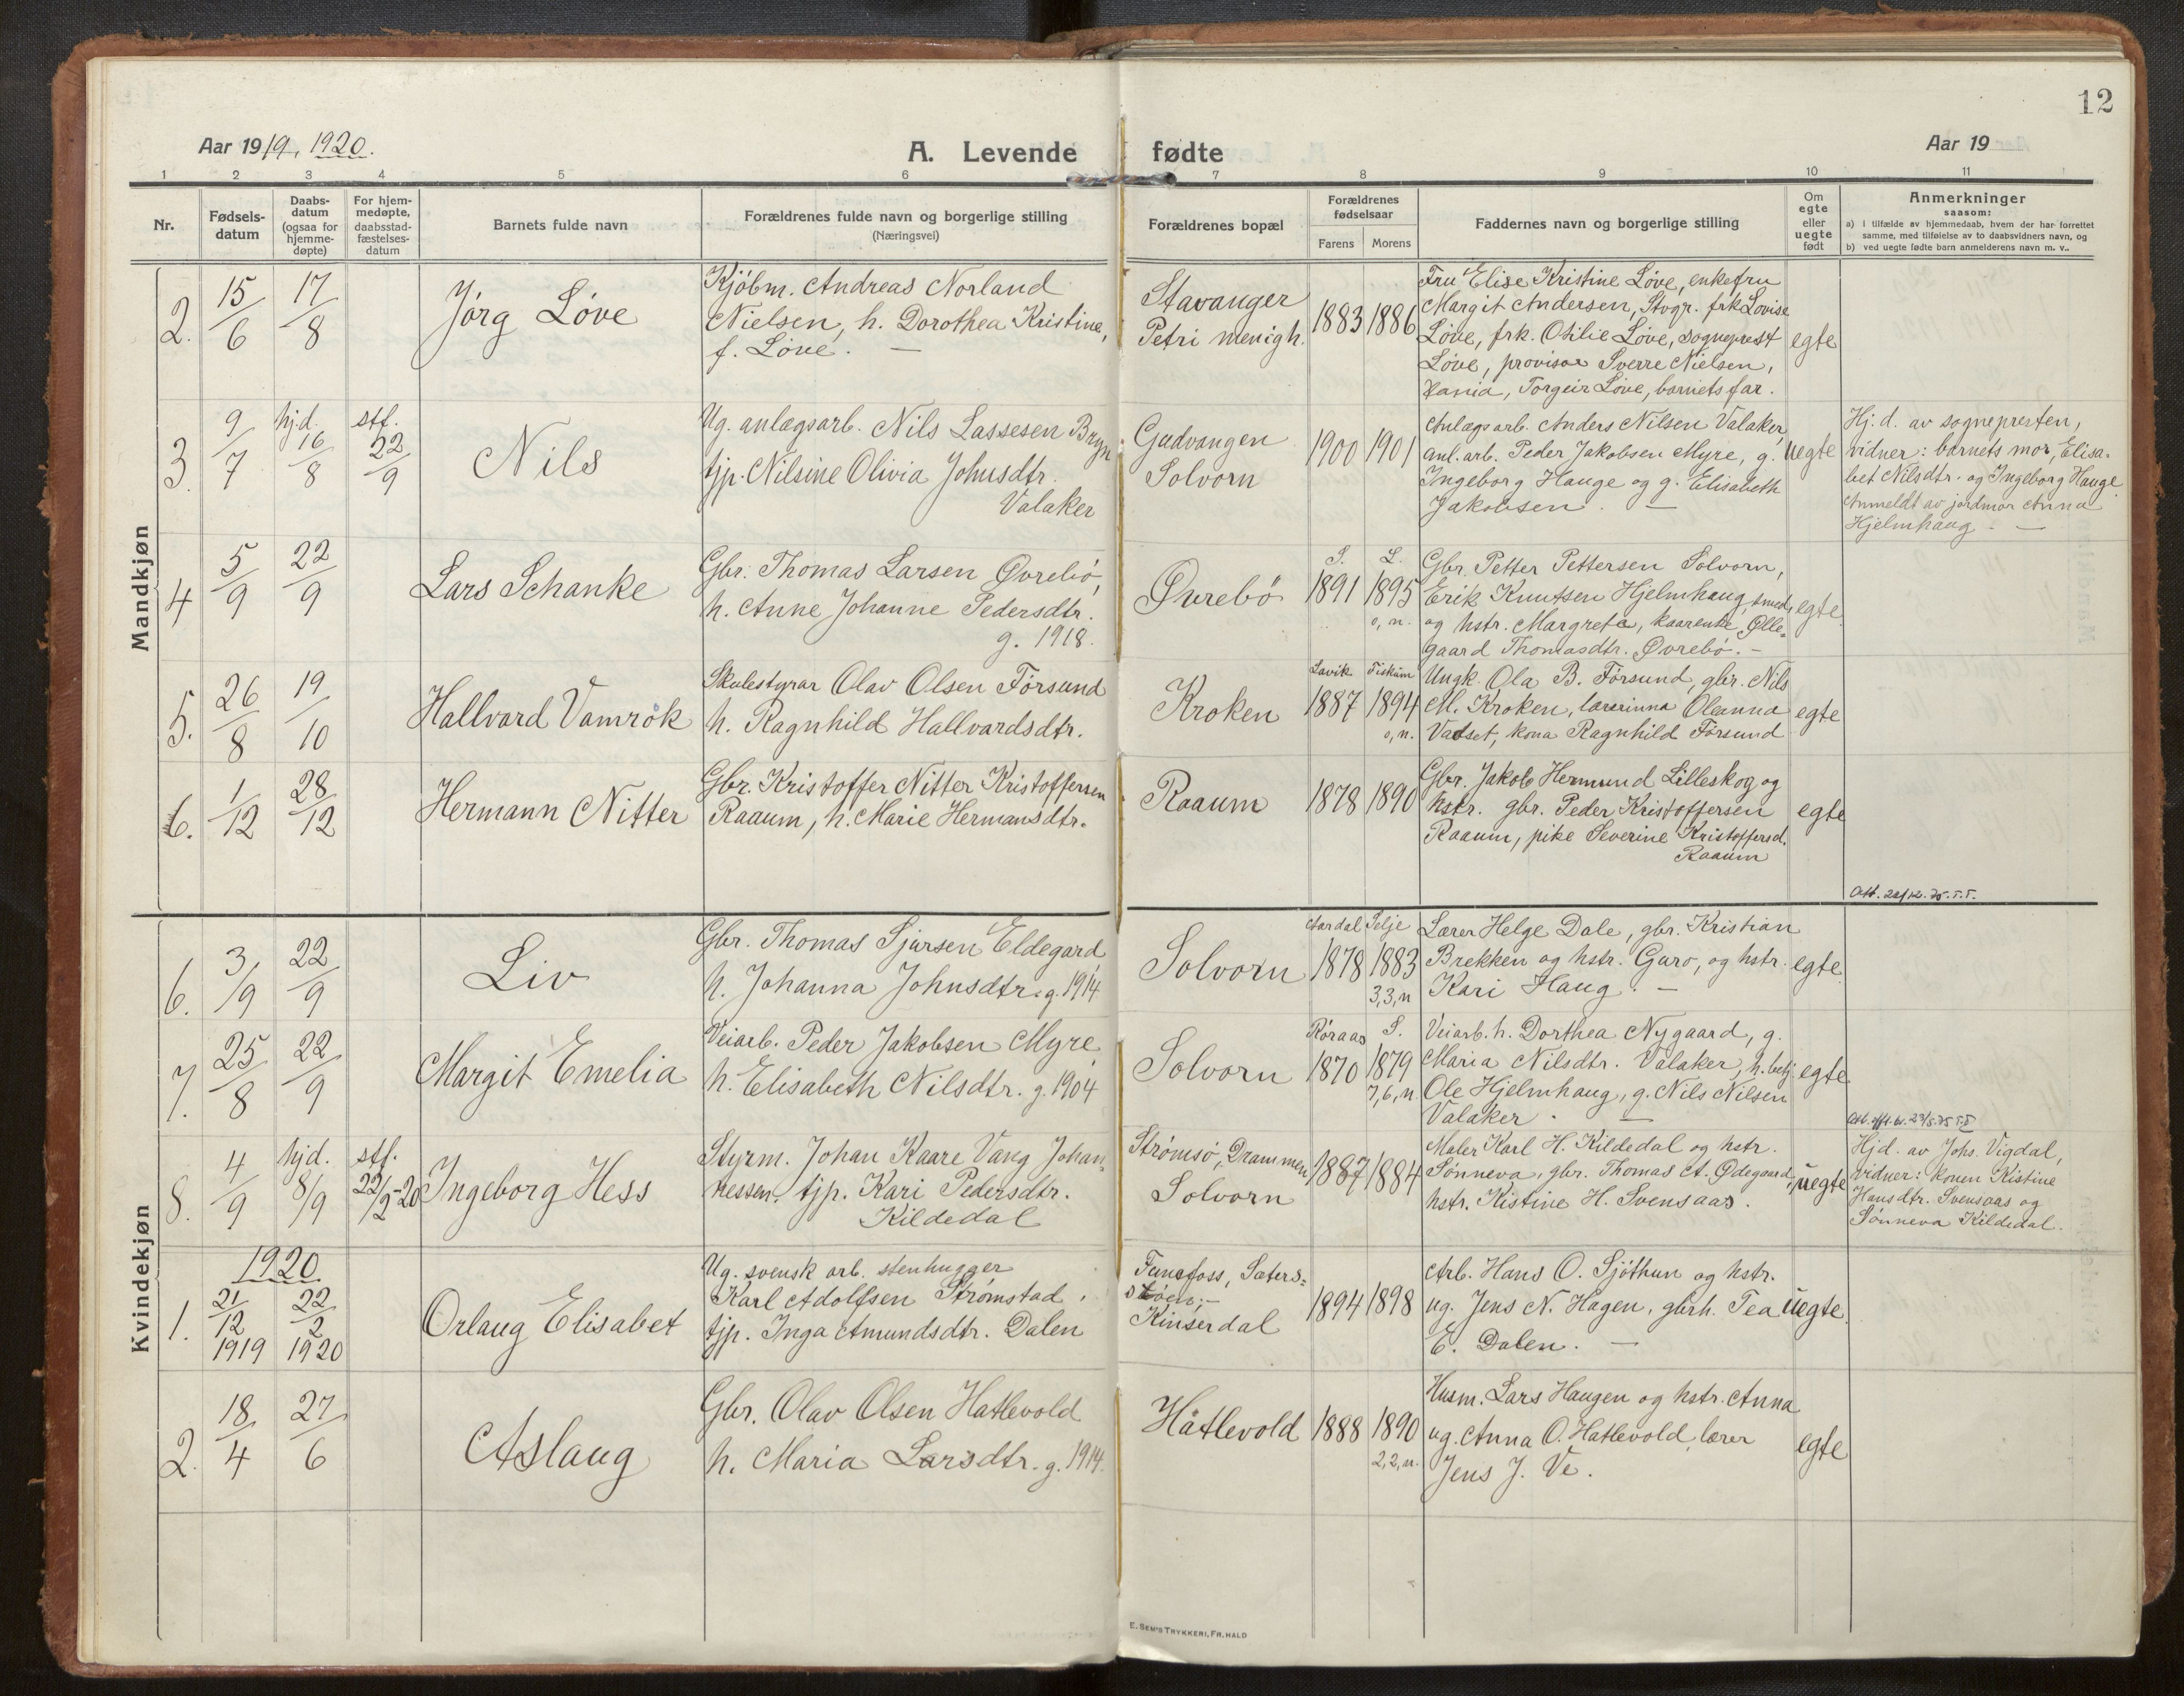 12
Aar 1919, 1920.
A. Levende fødte
Aar 19
1 2 3 4 5 6 7 8 9 10 11
Nr.
Fødsels-
datum
Daabs-
datum
(ogsaa for
hjemme-
døpte)
For hjem-
medøpte,
daabsstad-
fæstelses-
datum
Barnets fulde navn
Forældrenes fulde navn og borgerlige stilling
(Næringsvei)
Forældrenes bopæl
Forældrenes
fødselsaar
Farens Morens
Faddernes navn og borgerlige stilling
Om
egte
eller
uegte
født
Anmerkninger
saasom:
a) i tilfælde av hjemmedaab, hvem der har forrettet
samme, med tilføielse av to daabsvidners navn, og
b) ved uegte fødte barn anmelderens navn m. v..
Mandkjøn
2. 15/6 17/8
Jörg Löve
Kjöbm. Andreas Norland
Nielsen, h. Dorothea Kristine,
f. Löve. —
Stavanger
Petri menigh.
1883 1886
Fru Elise Kristine Löve, enkefru
Margit Andersen, Stvgr. frk Lovise
Löve, frk. Otilie Löve, sogneprest
Löve, provisor Sverre Nielsen,
Xania, Torgeir Löve, barnets far.
egte
3. 9/7 hj.d. 16/8 stf. 22/9
Nils
Ug. anlægsarb. Nils Lassesen Bryn
tjp. Nilsine Olivia Johnsdtr.
Valaker
Gudvangen
Solvorn
1900 1901
Anlægsarb. Anders Nilsen Valaker,
anl. arb. Peder Jakobsen Myre, g.
Ingeborg Hauge og g. Elisabeth
Jakobsen. —
uegte
Hj. d. av sognepresten,
vidner: barnets mor, Elisa-
bet Nilsdtr. og Ingeborg Hauge.
Anmeldt av jordmor Anna
Hjelmhaug. —
4 5/9 22/9
Lars Schanke
Gbr. Thomas Larsen Øvrebö,
h. Anne Johanne Pedersdtr.
g. 1918.
Øvrebö
S. L.
1891 1895
0, n.
Gbr. Petter Pettersen Solvorn,
Erik Knutsen Hjelmhaug, smed,
og hstr. Margrete, kaarenke Ølle-
gaard Thomasdtr. Øvrebö. —
egte
5. 26/8 19/10
Hallvard Vamrök
Skulestyrar Olav Olsen Försund
h. Ragnhild Hallvardsdtr.
Kroken
Lavik Fiskum
1887 1894
0, n.
Ungk. Ola B. Försund, gbr. Nils
M. Kroken, lærerinna Oleanna
Vatset, kona Ragnhild Försund
egte
6. 1/12 28/12
Hermann Nitter
Gbr. Kristoffer Nitter Kristoffersen
Raaum, h. Marie Hermansdtr.
Raaum
1878 1890
Gbr. Jakob Hermund Lilleskog og
hstr. gbr. Peder Kristoffersen
Raaum, pike Severine Kristoffersd.
Raaum
egte
Kvindekjøn
6. 3/9 22/9
Liv
Gbr. Thomas Sjursen Eldegard
h. Johanna Johnsdtr. g. 1914
Solvorn
Aardal Selje
1878 1883
3,3,n
Lærer Helge Dale, gbr. Kristian
Brekken og hstr. Guro, og hstr.
Kari Haug. —
egte
7. 25/8 22/9
Margit Emelia
Veiarb. Peder Jakobsen Myre
h. Elisabeth Nilsdtr. g. 1904
Solvorn
Röraas S.
1870 1879
7,6,n.
Veiarb. h. Dorthea Nygaard, g.
Maria Nilsdtr. Valaker, h. betj.
Ole Hjelmhaug, g. Nils Nilsen
Valaker. —
egte
8. 4/9 hjd. 8/9 stf. 22/2-20
Ingeborg Hess
Styrm. Johan Kaare Vang Johan-
nessen, tjp. Kari Pedersdtr.
Kildedal
Strömsö, Drammen,
Solvorn
1887 1884
Maler Karl H. Kildedal og hstr.
Sönneva, gbr. Thomas A. Ødegaard,
hstr. Kistine H. Svensaas.
uegte
Hjd. av Johs. Vigdal,
vidner: konen Kistine
Hansdtr. Svensaas og
Sönneva Kildedal.
1920
1. 21/12 1919 22/2 1920
Orlaug Elisabet
Ug. svensk arb. stenhugger
Karl Adolfsen Strømstad,
tjp. Inga Amundsdtr. Dalen
Funefoss, Sæters-
støen; —
Kinserdal
1894 1898
Arb. Hans O. Sjöthun og hstr.
ug. Jens N. Hagen, gbrh. Tea
E. Dalen. —
uegte
2. 18/4 27/6
Aslaug
Gbr. Olav Olsen Hatlevold
h. Maria Larsdtr. g. 1914.
Hatlevold
1888 1890
2,2,n.
Husm. Lars Haugen og hstr. Anna
ug. Anna O. Hatlevold, lærer
Jens J. Ve.
egte
E. SEM'S TRYKKERI, FR.HALD